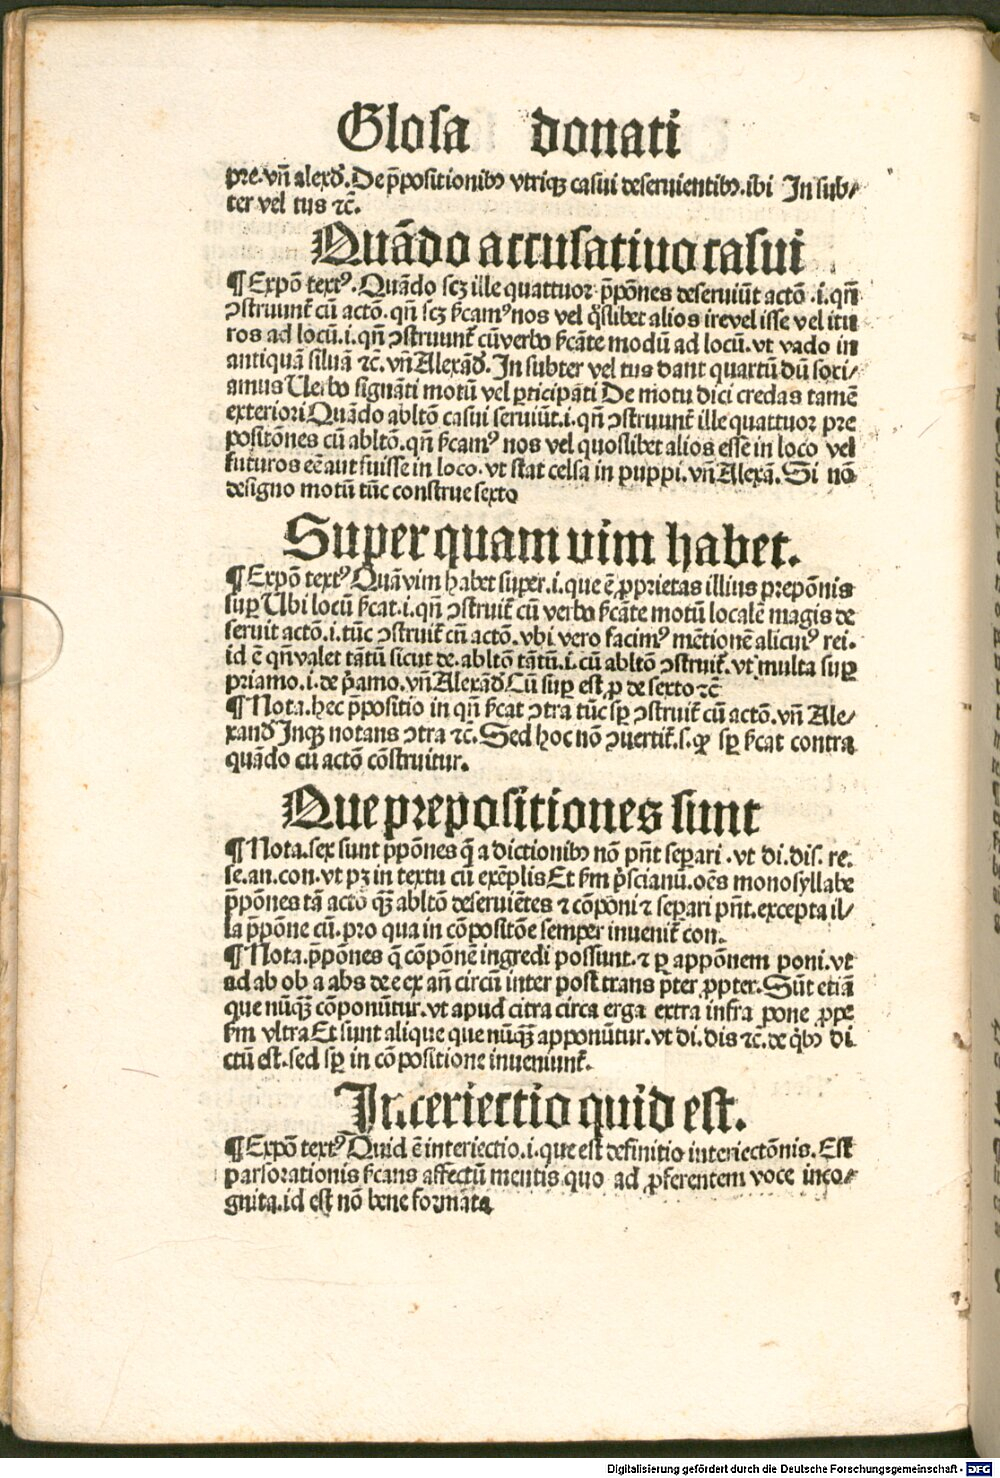 Glosa donati
pre.vñ alexd̃. De p̄positionibꝰ vtriqꝫ casui deseruientibꝰ.ibi In sub⸗
ter vel tus ⁊c̃.
Quãdo accusatiuo casui
¶ Expõ textꝰ. Quãdo scꝫ ille quattuor p̄põnes deseruiũt actõ .i.qñ
ↄstruunt̃ cũ actõ. qñ scꝫ s̃camꝰ nos vel q̊slibet alios ire vel isse vel itu
ros ad locũ.i.qñ ↄstruunt̃ cũ verbo s̃cãte modũ ad locũ. vt vado in
antiquã siluã ⁊c̃. vñ Alexãd̃. In subter vel tus dant quartũ dũ soci⸗
amus Uerbo signãti motũ vel ꝑticipãti De motu dici credas tamẽ
exteriori Quãdo abltõ casui seruiũt.i.qñ ↄstruunt̃ ille quattuor pre
positõnes cũ abltõ.qñ s̃camꝰ nos vel quoslibet alios esse in loco vel
futuros eẽ aut fuisse in loco. vt stat celsa in puppi. vñ Alexã. Si nõ
designo motũ tũc construe sexto
Super quam vim habet.
¶ Expõ textꝰ Quã vim habet super.i.que ẽ ꝓprietas illius prepõnis
suꝑ Ubi locũ s̃cat.i.qñ ↄstruit̃ cũ verbo s̃cãte motũ localẽ magis de
seruit actõ.i.tũc ↄstruit̃ cũ actõ. vbi vero facimꝰ mẽtionẽ alicuiꝰ rei.
id ẽ qñ valet tãtũ sicut de. abltõ tãtũ.i.cũ abltõ ↄstruit̃. vt multa suꝑ
priamo.i.de p̄amo. vñ Alexãd̃ Cũ suꝑ est ꝓ de sexto ⁊c̃
¶ Nota.hec p̄positio in qñ s̃cat ↄtra tũc sꝑ ↄstruit̃ cũ actõ. vñ Ale⸗
xand̃ Inqꝫ notans ↄtra ⁊c̃. Sed hoc nõ ↄuertit̃.s.ꝙ sꝑ s̃cat contra
quãdo cũ actõ cõstruitur.
Que prepositiones sunt
¶ Nota.sex sunt p̄põnes q̃ a dictionibꝰ nõ pñt seꝑari .vt di.dis. re.
se.an.con. vt pꝫ in textu cũ exẽplis Et s̃m p̃scianũ.oẽs monosyllabe
p̄põnes tã actõ qꝫ̃ abltõ deseruiẽtes ⁊ cõponi ⁊ seꝑari pñt.excepta il⸗
la p̄põne cũ.pro qua in cõpositõe semper inuenit̃ con.
¶ Nota.p̄põnes q̃ cõponẽ ingredi possunt.⁊ ꝑ appõnem poni.vt
ad ab ob a abs de e ex añ circũ inter post trans p̄ter ꝓpter. Sũt etiã
que nũqꝫ̃ cõponũtur. vt apud citra circa erga extra infra pone ꝓpe
s̃m vltra Et sunt alique que nũqꝫ̃ apponũtur. vt di. dis ⁊c̃. de q̃bꝰ di
ctũ est. sed sꝑ in cõpositione inueniunt̃.
Interiectio quid est.
¶ Expõ textꝰ Quid ẽ interiectio.i.que est definitio interiectõnis. Est
pars orationis s̃cans affectũ mentis quo ad ꝓferentem voce inco⸗
gnita.id est nõ bene formata
Digitalisierung gefördert durch die Deutsche Forschungsgemeinschaft - DFG